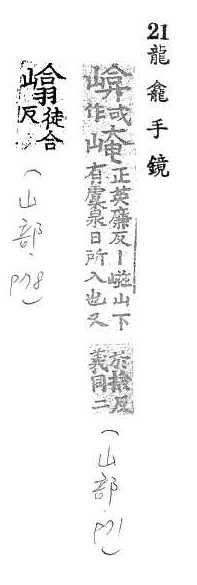 21 龍龕手鏡
或作崦正英廉反丨嵫山下
有虞泉日所入也又
於撿反
義同二
(山部、p71)
徒合
反
(山部、p78)